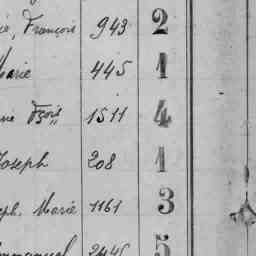 ie, François 943 2
Marie 445 1
rie Fçois 1511 4
Joseph 208 1
eph. Marie 1161 3
mmanuel 2445 5